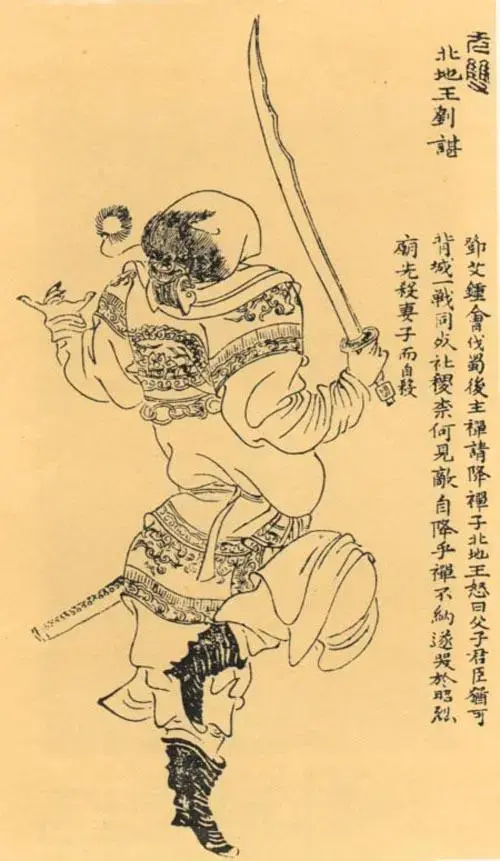 无雙
北地王劉諶
鄧艾鍾會伐蜀後主禪請降禪子北地王怒曰父子君臣猶可
背城一戰同死社稷柰何見敵自降乎禪不納遂哭於昭烈
廟先殺妻子而自殺